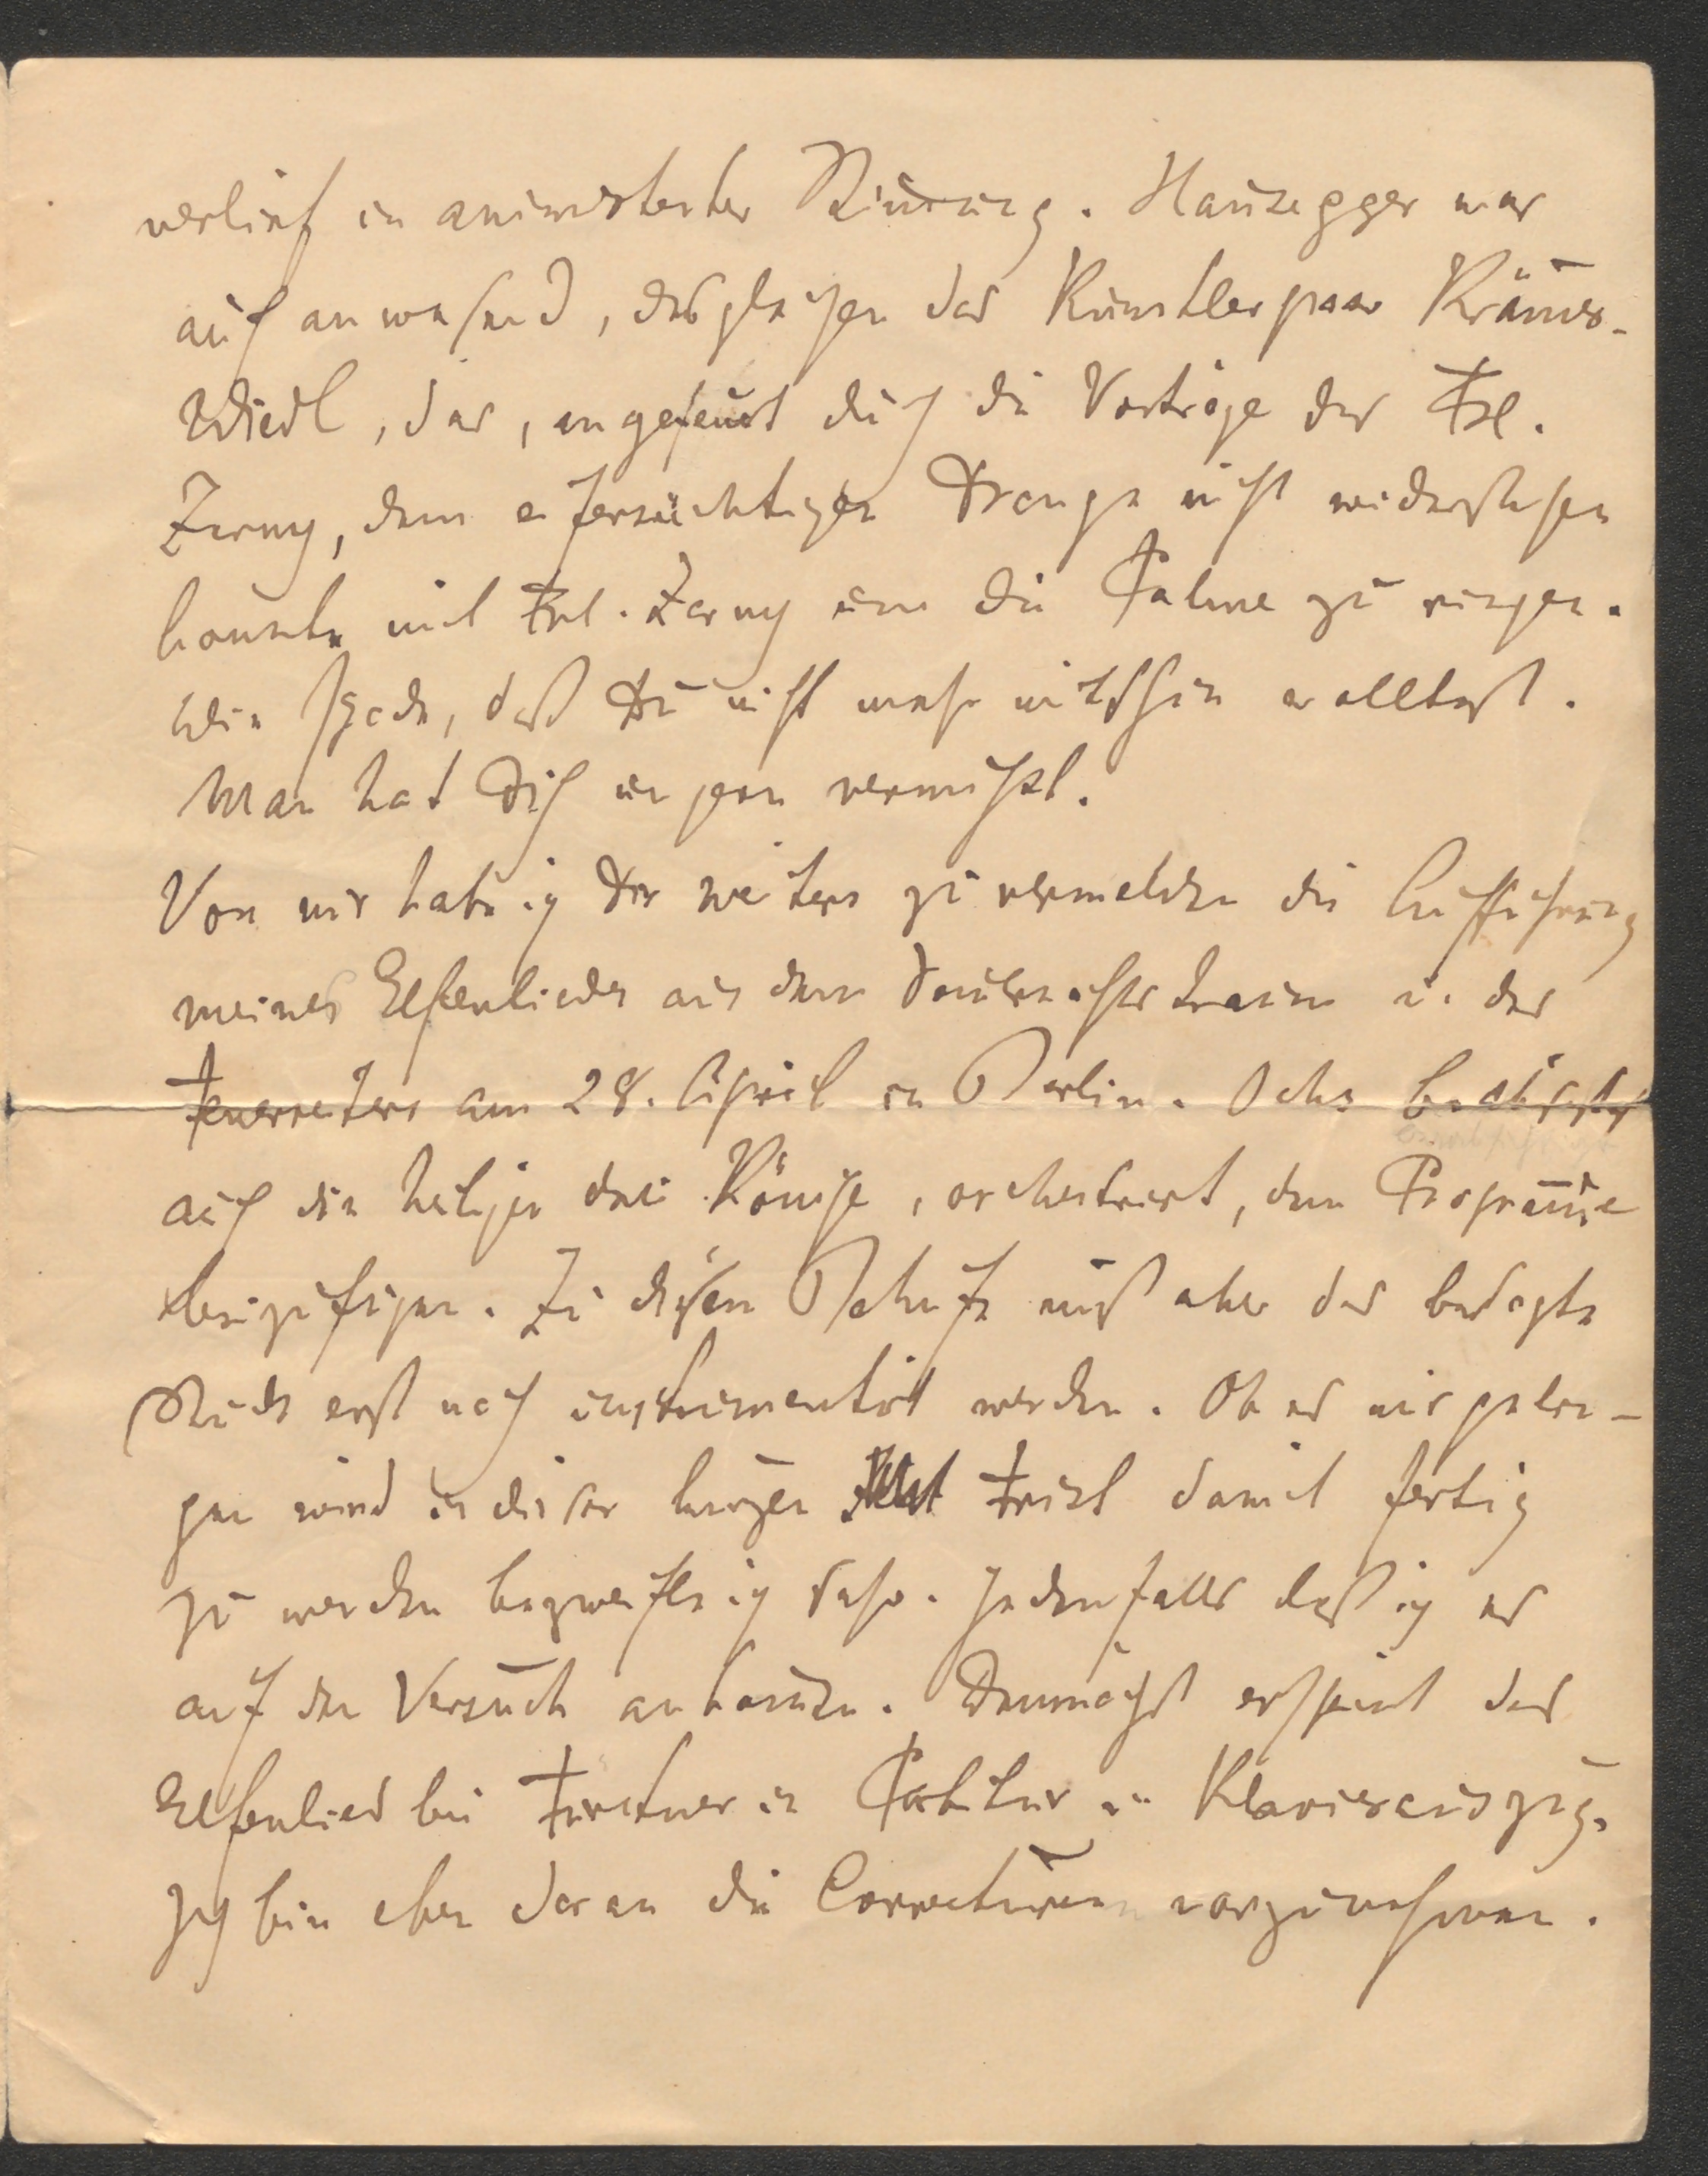 verlief in animirtester Stimmung. Hausegger war
auch anwesend, desgleichen das Künstlerpaar Krämer-
Widl, das, angefeuert durch die Vorträge des Frl.
Zerny, dem eifersüchtigen Drange nicht widerstehen
konnte mit Frl. Zerny um die Palme zu ringen.
Wie schade, daß Du nicht mehr mitthun wolltest.
Man hat Dich ungern vermißt.
Von mir habe ich Dir weiters zu vermelden die Aufführung
meines Elfenliedes aus dem Sommernachtstraum u. des
Feuerreiters am 28. April in Berlin. Ochs beabsichtigt
auch die heiligen drei Könige, orchestrirt, dem Programme
beizufügen. Zu diesem Behufe muß aber das besagte
Stück erst noch instrumentirt werden. Ob es mir gelin-
gen wird in dieser kurzen Frist damit fertig
zu werden bezweifle ich sehr. Jedenfalls laß ich es
auf den Versuch ankommen. Demnächst erscheint das
Elfenlied bei Fürstner in Partitur u. Klavierauszug.
Ich bin eben daran die Correcturen vorzunehmen.